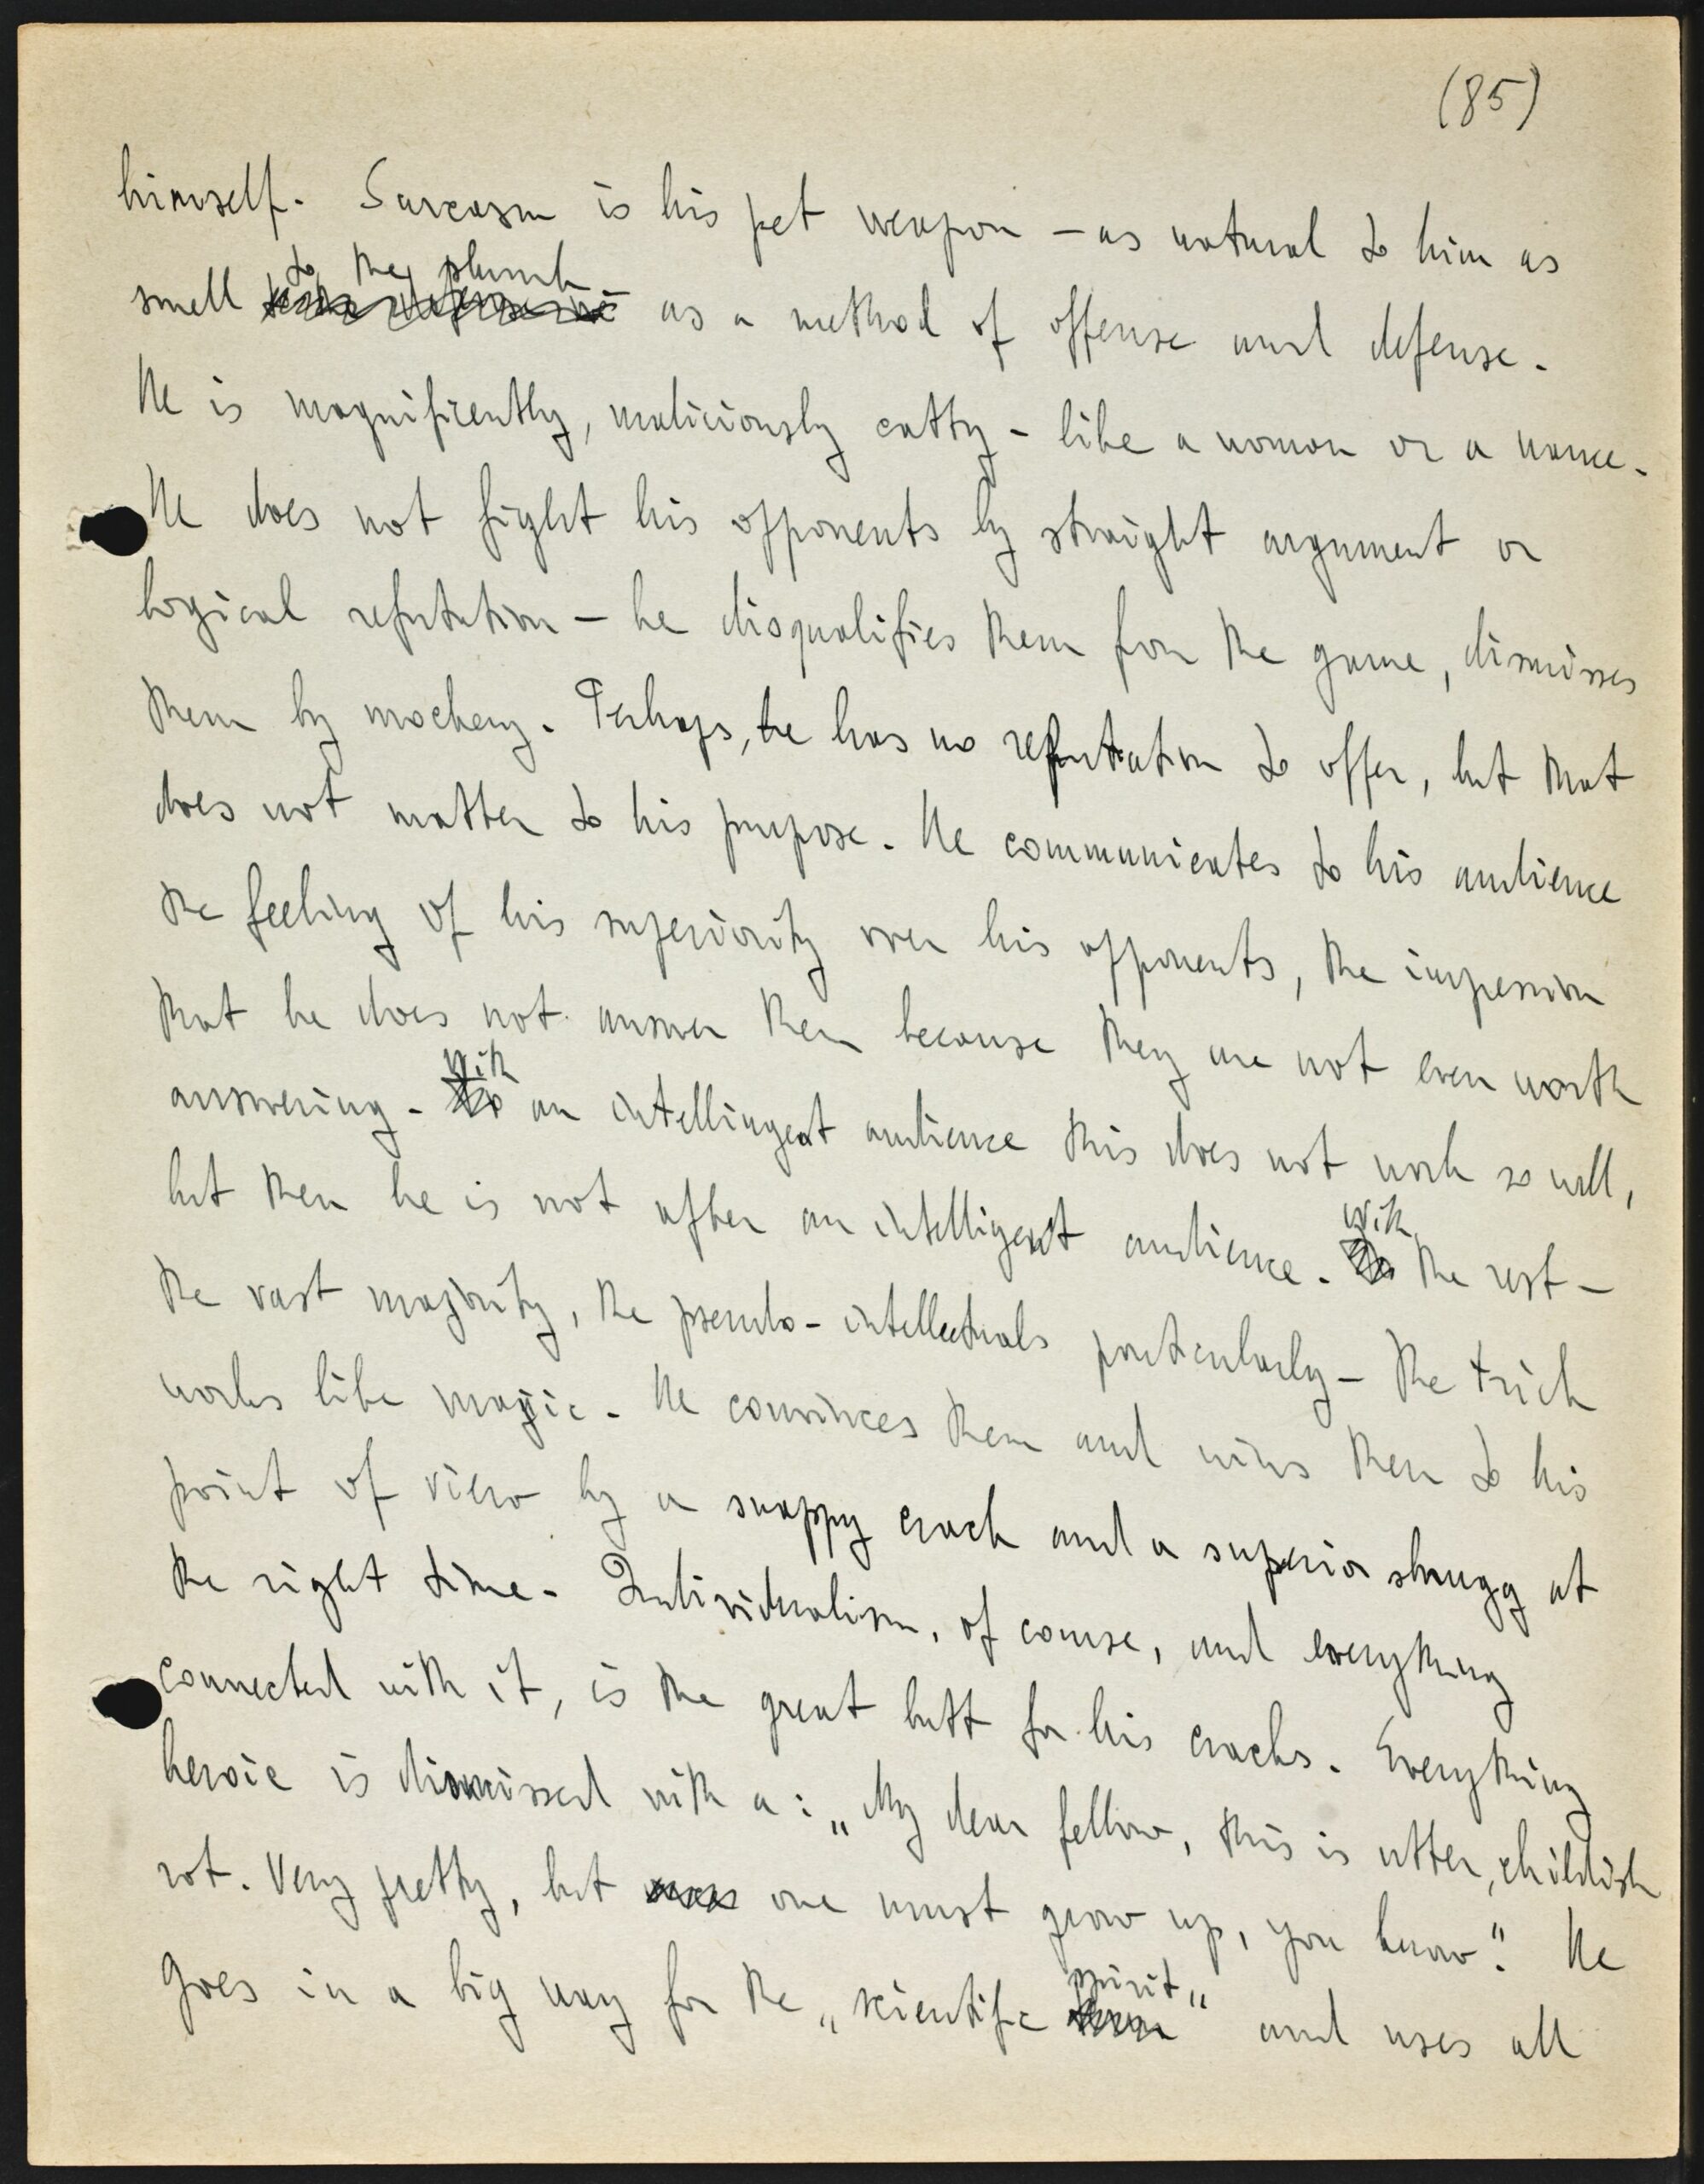 (85)
himself. Sarcasm is his pet weapon — as natural to him as
to the skunk
smell as a method of offense and defense.
He is magnificently, maliciously catty - like a woman or a nance.
He does not fight his opponents by straight argument or
logical refutation — he disqualifies them from the game, dismisses
them by mockery. Perhaps, he has no refutation to offer, but that
does not matter to his purpose. He communicates to his audience
the feeling of his superiority over his opponents, the impression
that he does not answer them because they are not even worth
with
answering. To an intellingent audience this does not work so well,
but then he is not after an intelligent audience. To the rest —
with
the vast majority, the pseudo-intellectuals particularly — the trick
works like magic. He convinces them and wins them to his
point of view by a snappy crack and a superior shrugg at
the right time. Individualism, of course, and everything
connected with it, is the great butt for his cracks. Everything
heroic is dismissed with a: „My dear fellow, this is utter, childish
rot. Very pretty, but one must grow up, you know". He
spirit"
goes in a big way for the „scientific and uses all